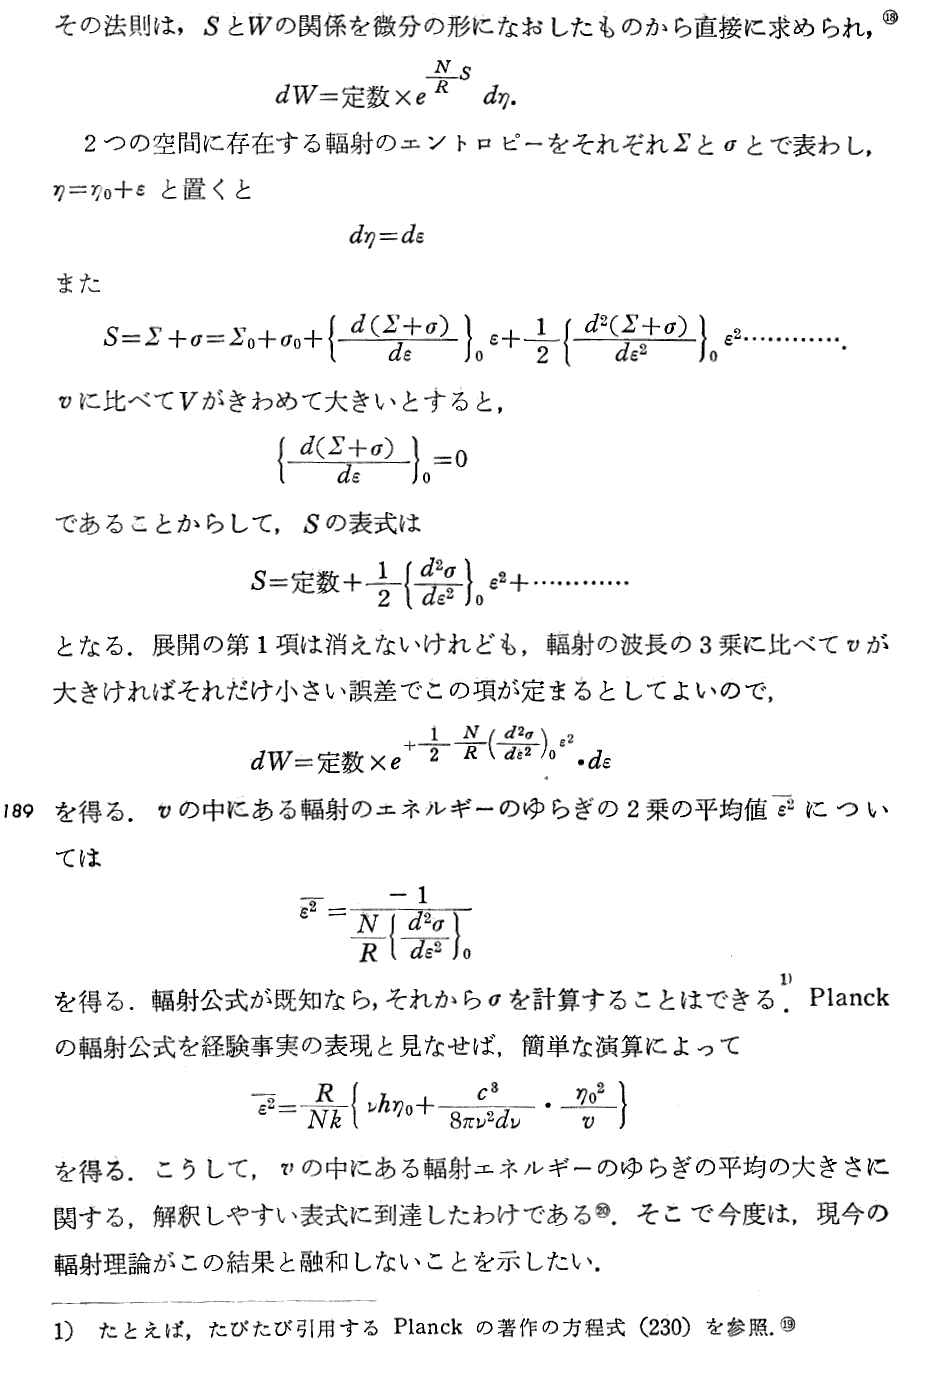 その法則は，SとWの関係を微分の形になおしたものから直接に求められ，⑱
dW=定数×e^{\frac{N}{R}S} dη.
2つの空間に存在する輻射のエントロピーをそれぞれΣとσとで表わし，
η=η₀+ε と置くと
dη=dε
また
S=Σ+σ=Σ₀+σ₀+{\frac{d(Σ+σ)}{dε}}₀ε+\frac{1}{2}{\frac{d²(Σ+σ)}{dε²}}₀ε²…………．
vに比べてVがきわめて大きいとすると，
{\frac{d(Σ+σ)}{dε}}₀=0
であることからして，Sの表式は
S=定数+\frac{1}{2}{\frac{d²σ}{dε²}}₀ε²+…………
となる．展開の第1項は消えないけれども，輻射の波長の3乗に比べてvが
大きければそれだけ小さい誤差でこの項が定まるとしてよいので，
dW=定数×e^{+\frac{1}{2}\frac{N}{R}(\frac{d²σ}{dε²})₀ε²}・dε
189 を得る．vの中にある輻射のエネルギーのゆらぎの2乗の平均値 \overline{ε²} につい
ては
\overline{ε²}=\frac{-1}{\frac{N}{R}{\frac{d²σ}{dε²}}₀}
を得る．輻射公式が既知なら，それからσを計算することはできる¹⁾．Planck
の輻射公式を経験事実の表現と見なせば，簡単な演算によって
\overline{ε²}=\frac{R}{Nk}{νhη₀+\frac{c³}{8πν²dν}・\frac{η₀²}{v}}
を得る．こうして，vの中にある輻射エネルギーのゆらぎの平均の大きさに
関する，解釈しやすい表式に到達したわけである⑳．そこで今度は，現今の
輻射理論がこの結果と融和しないことを示したい．
1) たとえば，たびたび引用する Planck の著作の方程式（230）を参照．⑲